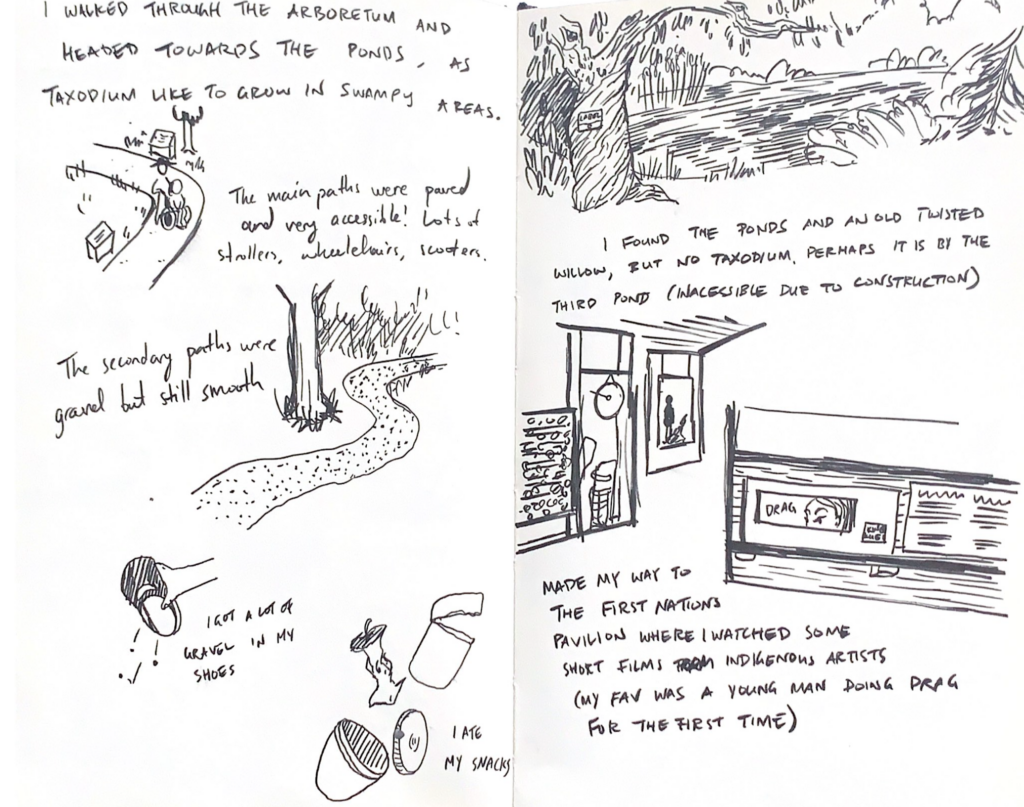 I WALKED THROUGH THE ARBORETUM AND
HEADED TOWARDS THE PONDS, AS
TAXODIUM LIKE TO GROW IN SWAMPY AREAS.
The main paths were paved
and very accessible! Lots of
strollers, wheelchairs, scooters.
The secondary paths were
gravel but still smooth
I GOT A LOT OF
GRAVEL IN MY
SHOES
I ATE
MY SNACKS
LABEL
I FOUND THE PONDS AND AN OLD TWISTED
WILLOW, BUT NO TAXODIUM. PERHAPS IT IS BY THE
THIRD POND (INACESSIBLE DUE TO CONSTRUCTION)
DRAG
MADE MY WAY TO
THE FIRST NATIONS
PAVILION WHERE I WATCHED SOME
SHORT FILMS INDIGENOUS ARTISTS
(MY FAV WAS A YOUNG MAN DOING DRAG
FOR THE FIRST TIME)